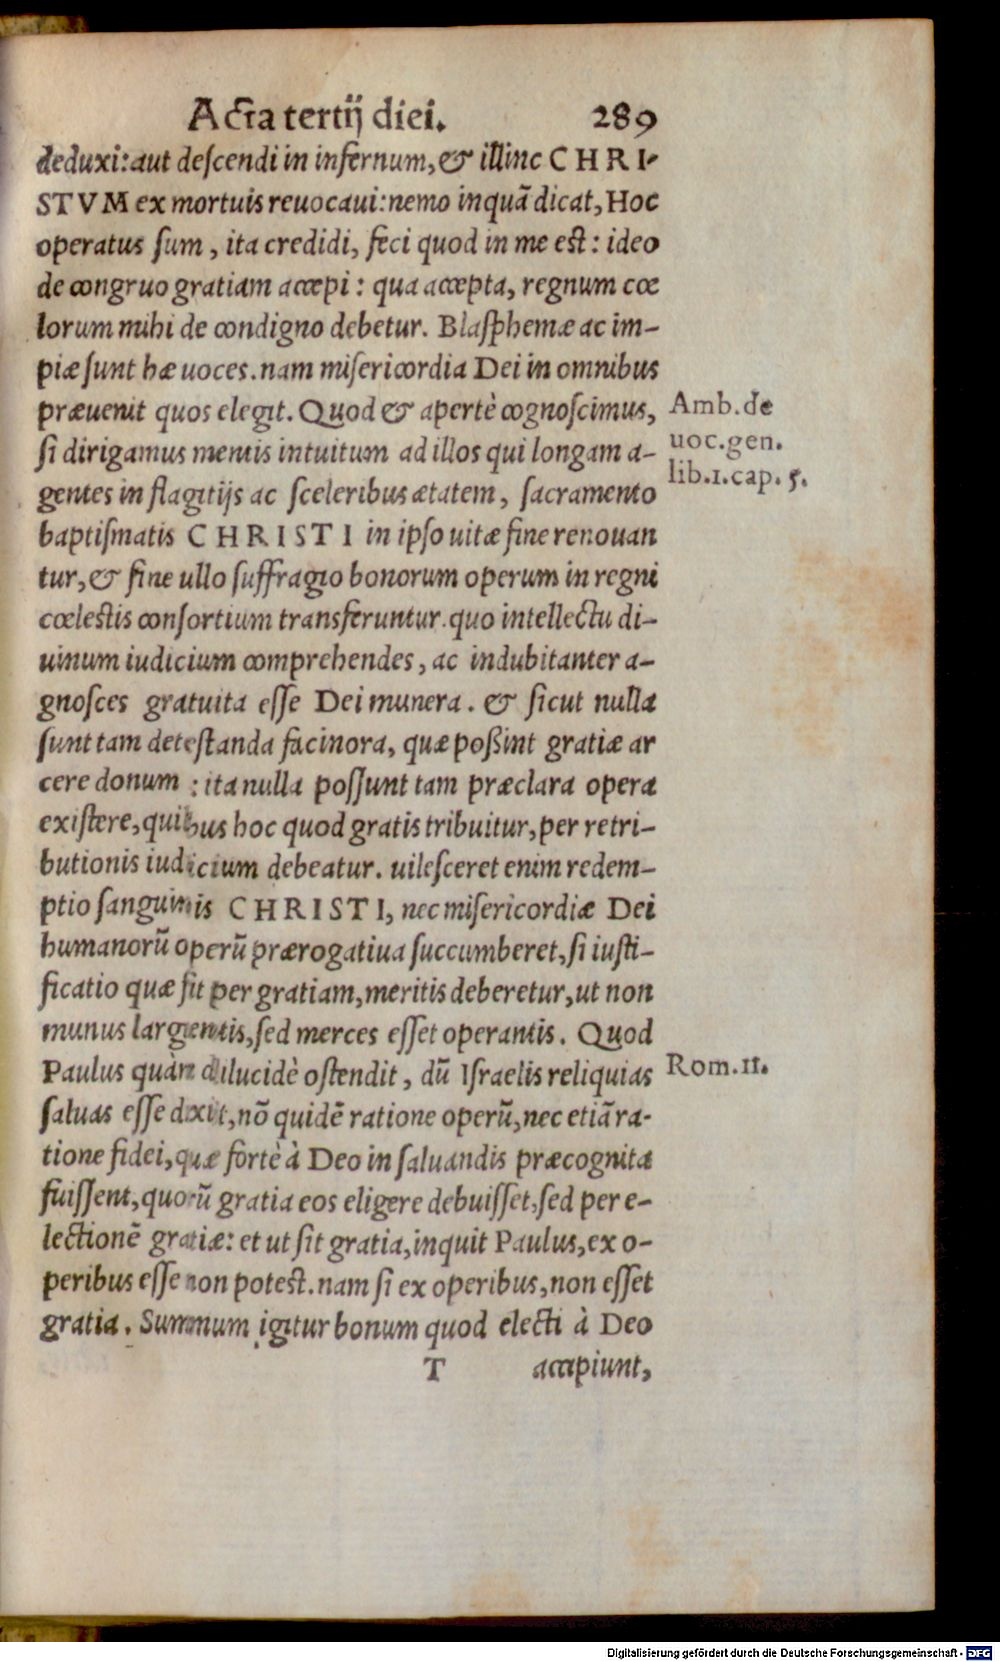 Acta tertij diei. 289
deduxi: aut deſcendi in infernum, & illinc CHRI-
STVM ex mortuis reuocaui: nemo inquā dicat, Hoc
operatus ſum, ita credidi, feci quod in me est: ideo
de congruo gratiam accepi: qua accepta, regnum cœ
lorum mihi de condigno debetur. Blaſphemæ ac im-
piæ ſunt hæ uoces. nam miſericordia Dei in omnibus
præuenit quos elegit. Quod & apertè cognoſcimus,
Amb. de
ſi dirigamus mentis intuitum ad illos qui longam a-
uoc. gen.
lib. 1. cap. 5.
gentes in flagitijs ac ſceleribus ætatem, ſacramento
baptiſmatis CHRISTI in ipſo uitæ fine renouan
tur, & ſine ullo ſuffragio bonorum operum in regni
cœlestis conſortium transferuntur. quo intellectu di-
uinum iudicium comprehendes, ac indubitanter a-
gnoſces gratuita eſſe Dei munera. & ſicut nulla
ſunt tam detestanda facinora, quæ poßint gratiæ ar
cere donum: ita nulla poſſunt tam præclara opera
existere, quibus hoc quod gratis tribuitur, per retri-
butionis iudicium debeatur. uileſceret enim redem-
ptio ſanguinis CHRISTI, nec miſericordiæ Dei
humanorū operū prærogatiua ſuccumberet, ſi iusti-
ficatio quæ fit per gratiam, meritis deberetur, ut non
munus largientis, ſed merces eſſet operantis. Quod
Paulus quàm dilucidè ostendit, dū Iſraelis reliquias
Rom. 11.
ſaluas eſſe dixit, nō quidē ratione operū, nec etiā ra-
tione fidei, quæ fortè à Deo in ſaluandis præcognita
fuiſſent, quorū gratia eos eligere debuiſſet, ſed per e-
lectionē gratiæ: et ut ſit gratia, inquit Paulus, ex o-
peribus eſſe non potest. nam ſi ex operibus, non eſſet
gratia. Summum igitur bonum quod electi à Deo
T accipiunt,
Digitalisierung gefördert durch die Deutsche Forschungsgemeinschaft - DFG